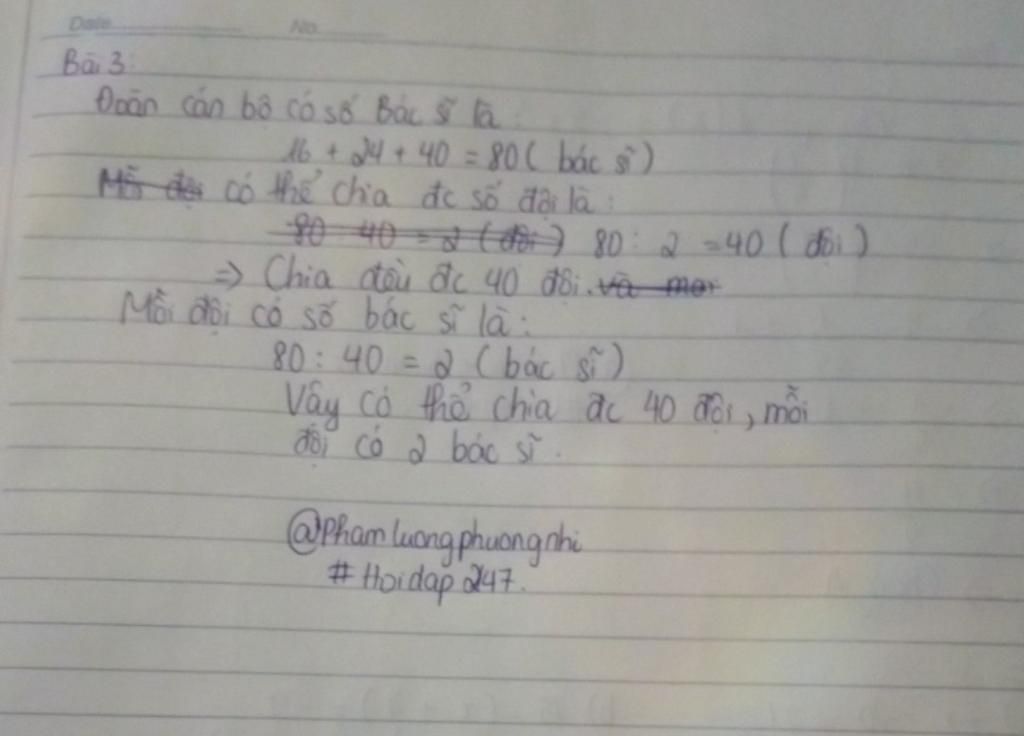 Date No
Bài 3:
Đoàn cán bộ có số Bác sĩ là:
16 + 24 + 40 = 80 ( bác sĩ )
Mỗi đội có thể chia đc số đội là:
80 : 40 = 2 ( đội ) 80 : 2 = 40 ( đội )
=> Chia đều đc 40 đội. và mỗi
Mỗi đội có số bác sĩ là:
80 : 40 = 2 ( bác sĩ )
Vậy có thể chia đc 40 đội, mỗi
đội có 2 bác sĩ.
@phamluongphuongnhi
# Hoidap 247.